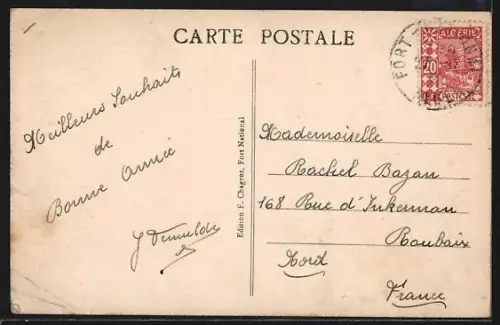 CARTE POSTALE
ALGÉRIE
20
FORT
Meilleurs Souhaits
de
Bonne Année
Edition F. Chagrot, Fort National
Mademoiselle
Rachel Bazan
168 Rue d'Inkerman
Roubaix
Nord
France